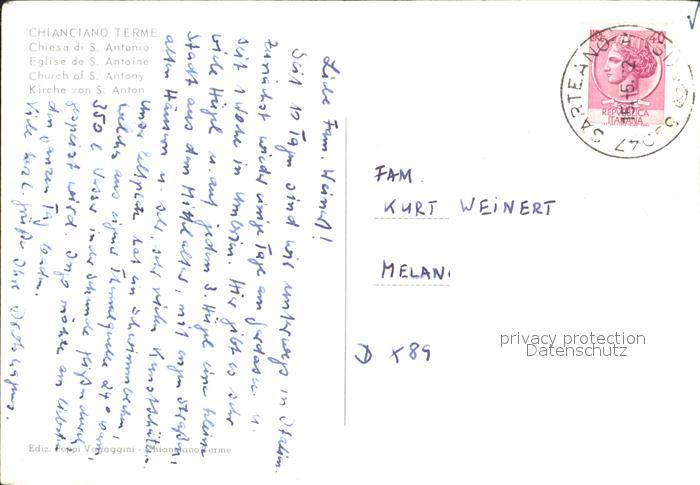 CHIANCIANO TERME
Chiesa di S. Antonio
Eglise de S. Antoine
Church of S. Antony
Kirche von S. Anton
Liebe Fam. Weinert!
Seit 10 Tagen sind wir unterwegs in Italien.
Zunächst wieder einige Tage am Gardasee u.
seit 1 Woche in Umbrien. Hier gibt es sehr
viele Hügel u. auf jedem 3. Hügel eine kleine
Stadt aus dem Mittelalter, mit engen Straßen,
alten Häusern u. sehr, sehr vielen Kunstschätzen.
Unser Zeltplatz hat ein Schwimmbecken,
welches aus eigner Thermalquelle 240
350 l Wasser in der Sekunde
gespeist wird. Ingo möchte am liebsten
den ganzen Tag baden.
Viele herzl. Grüße Ihre
Ediz. Poppi Vagaggini - Chianciano Terme
40
REPUBBLICA
ITALIANA
53047 SARTEANO
FAM.
KURT WEINERT
MELAN
D X89
privacy protection
Datenschutz